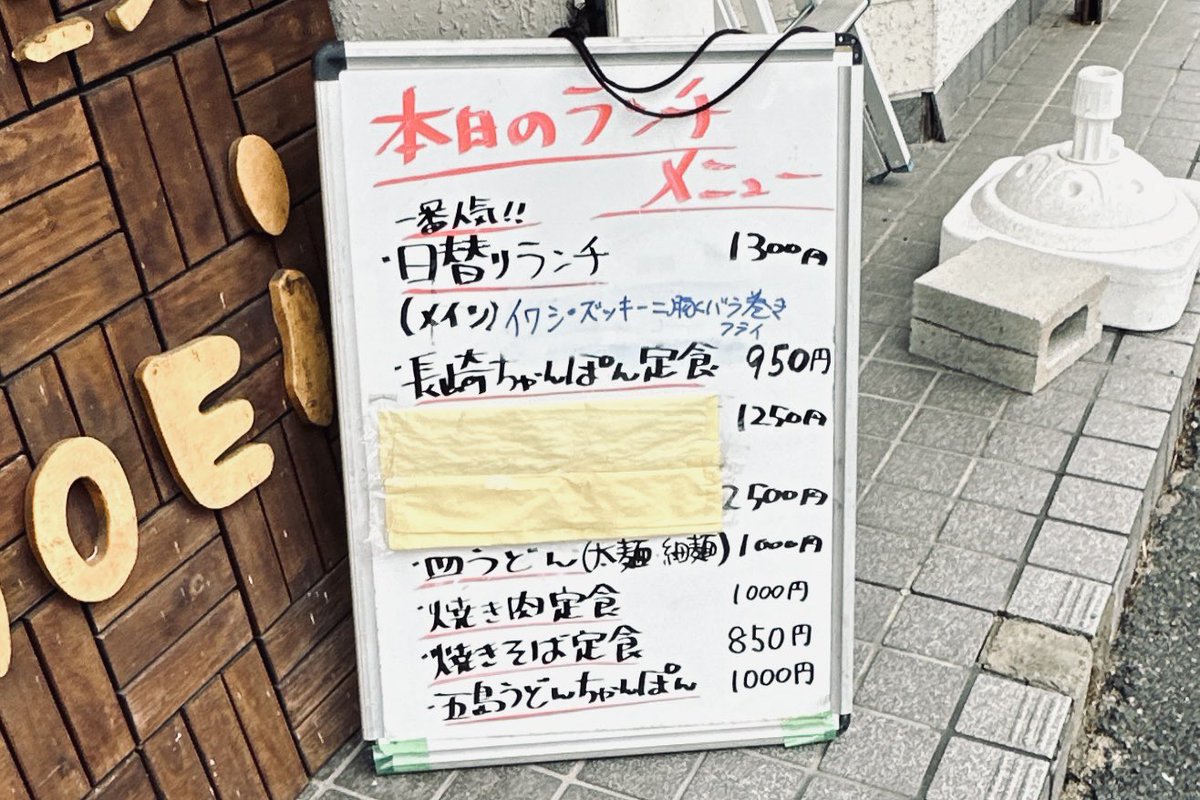 本日のランチ
メニュー
一番人気!!
・日替りランチ 1300円
(メイン)イワシ・ズッキーニ豚バラ巻き
フライ
・長崎ちゃんぽん定食 950円
1250円
2500円
・皿うどん(太麺・細麺) 1000円
・焼き肉定食 1000円
・焼きそば定食 850円
・五島うどんちゃんぽん 1000円
OE